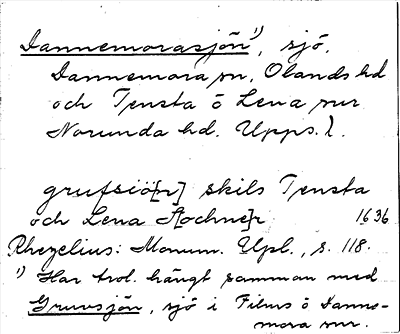 Dannemorasjön¹⁾, sjö.
Dannemora sn, Olands hd
och Tensta o Lena snr
Norunda hd. Upps. l.
grufsiö[n] skils Tensta
och Lena S[ochne]r 1636
Rhezelius: Monum. Upl., s. 118.
¹⁾ Har trol. hängt samman med
Gruvsjön, sjö i Films o Danne-
mora snr.